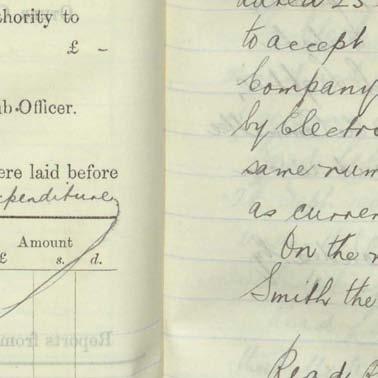 thority to
£ -
ub-Officer.
ere laid before
expenditure
Amount
£ s. d.
to accept
Company
by Electri
same num
as curren
On the m
Smith the
Read